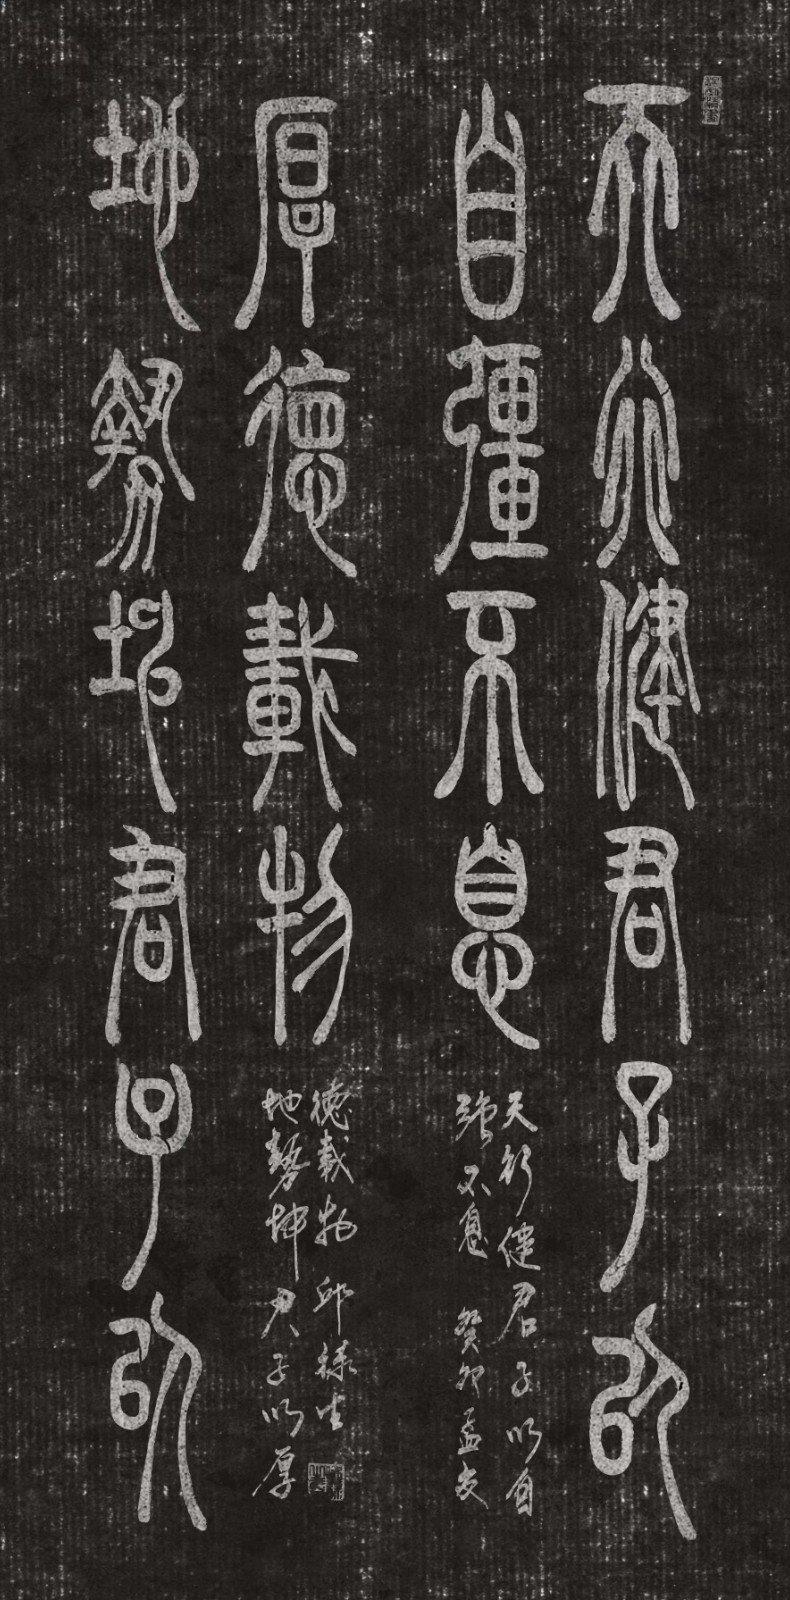 天行健君子以
自彊不息
天行健君子以自
強不息 癸卯孟夏
地勢坤君子以
厚德載物
地勢坤君子以厚
德載物 邱